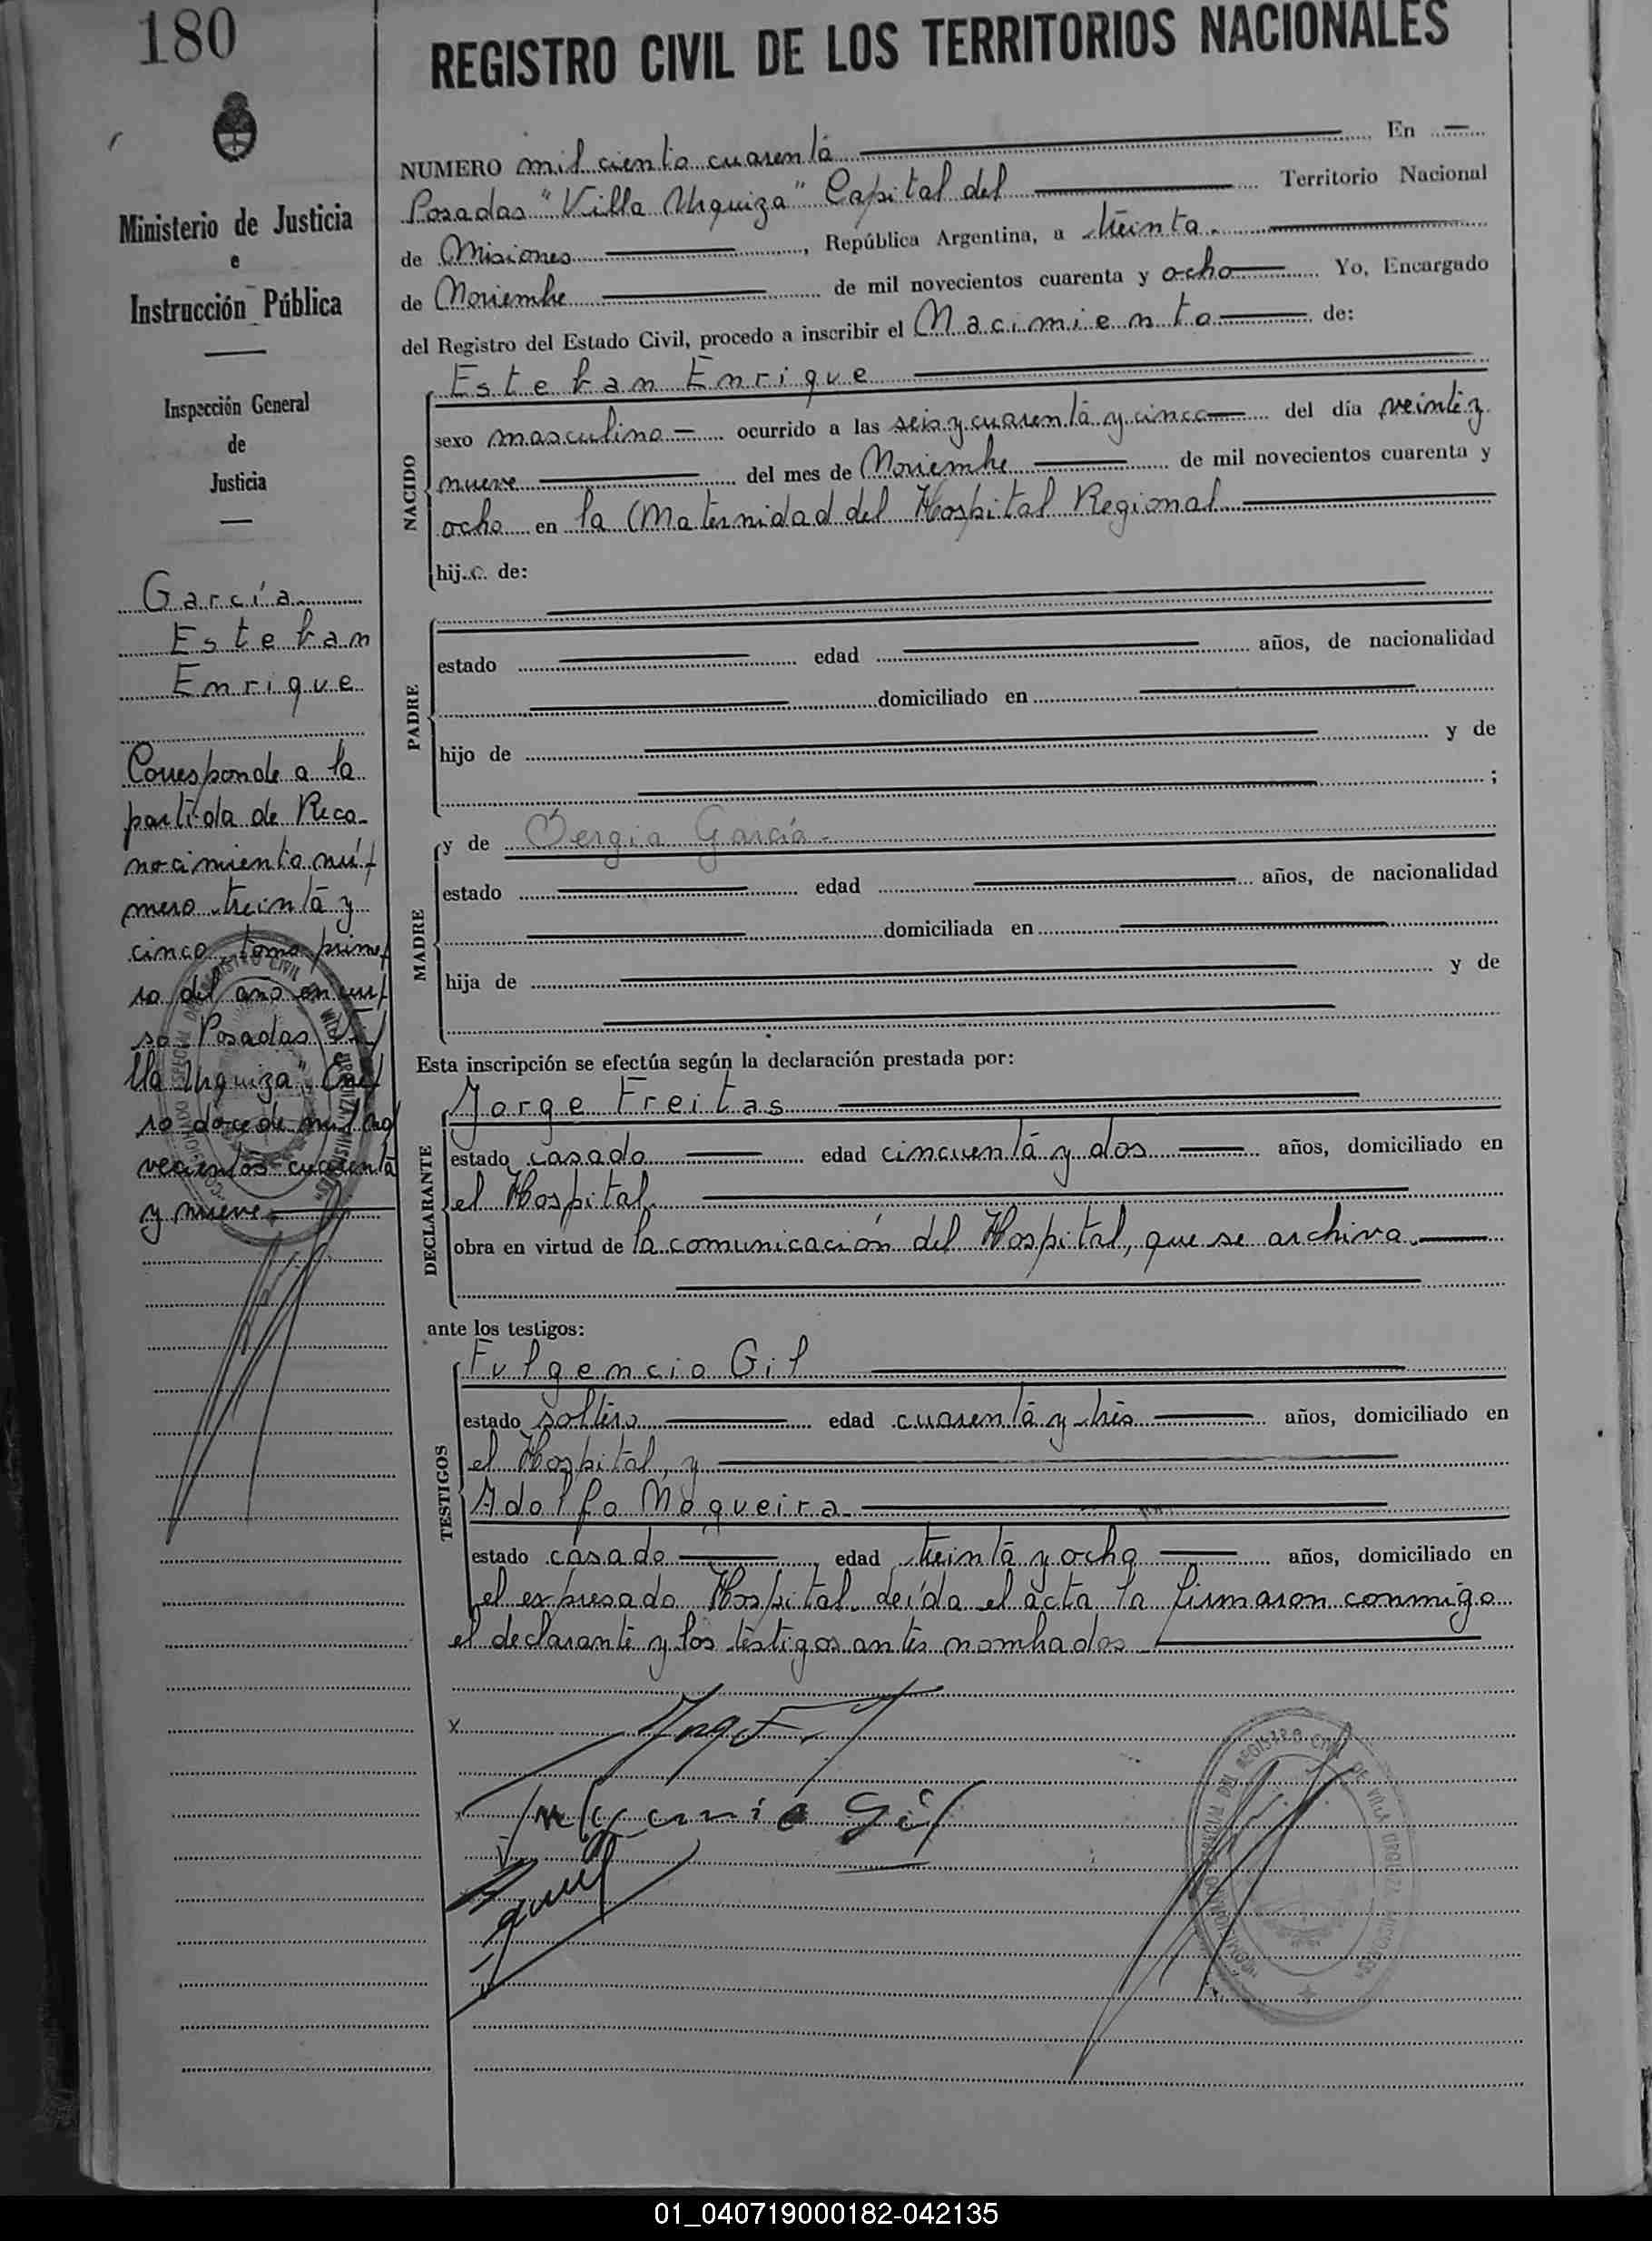 180
REGISTRO CIVIL DE LOS TERRITORIOS NACIONALES
Ministerio de Justicia
e
Instrucción Pública
Inspección General
de
Justicia
García
Esteban
Enrique
Corresponde a la
partida de Reco-
nocimiento nú-
mero treinta y
cinco tomo prime-
ro del año en cur-
so. Posadas "Vi-
lla Urquiza", Ene-
ro doce de mil no-
vecientos cuarenta
y nueve.
NUMERO mil ciento cuarenta En
Posadas "Villa Urquiza" Capital del Territorio Nacional
de Misiones, República Argentina, a treinta
de Noviembre de mil novecientos cuarenta y ocho Yo, Encargado
del Registro del Estado Civil, procedo a inscribir el Nacimiento de:
NACIDO
Esteban Enrique
sexo masculino - ocurrido a las seis y cuarenta y cinco del día veinte y
nueve del mes de Noviembre de mil novecientos cuarenta y
ocho en la Maternidad del Hospital Regional
hijo de:
PADRE
estado edad años, de nacionalidad
domiciliado en
hijo de y de
;
MADRE
y de Sergia García.
estado edad años, de nacionalidad
domiciliada en
hija de y de
Esta inscripción se efectúa según la declaración prestada por:
DECLARANTE
Jorge Freitas
estado casado edad cincuenta y dos años, domiciliado en
el Hospital.
obra en virtud de la comunicación del Hospital, que se archiva.
ante los testigos:
TESTIGOS
Fulgencio Gil
estado soltero edad cuarenta y tres años, domiciliado en
el Hospital, y
Adolfo Nogueira
estado casado, edad treinta y ocho años, domiciliado en
el expresado Hospital. Leída el acta la firmaron conmigo
el declarante y los testigos antes nombrados
Fulgencio Gil
01_040719000182-042135